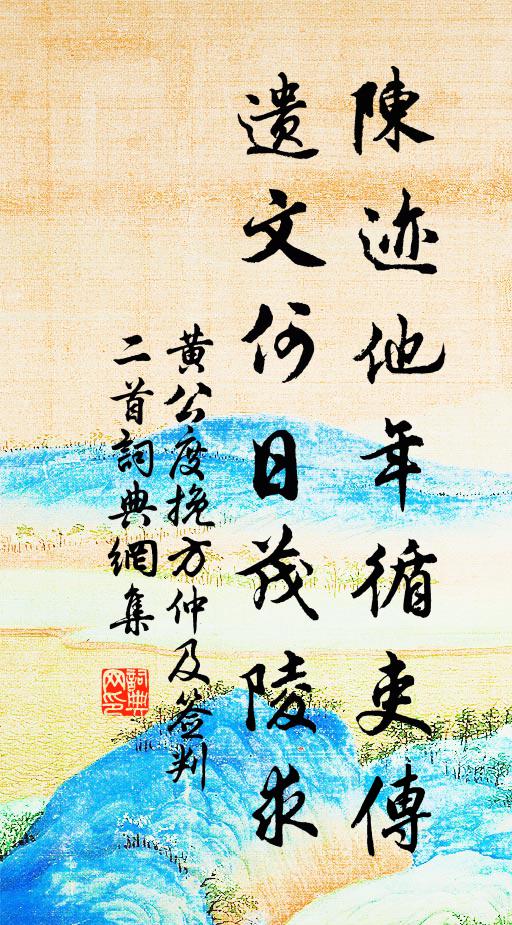 陳迹他年循吏傳
遺文何日茂陵求
黃公度挽方仲及簽判
二首詞典網集
詞典
网印